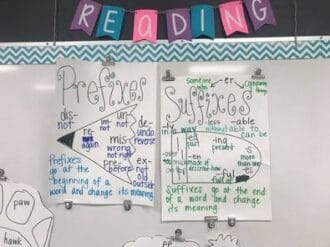 READING
Prefixes
dis-
not
un-
not
im-
not
de-
undo
reverse
re-
again
mis-
wrong
not right
pre-
before
ex-
not
old
outside
Prefixes
go at the
beginning of a
word and change its meaning
someone
who
-er
comparing
things
Suffixes
-ly
in a way
-less
without
-able
able to can
be
-ed
past
-ing
present
-s
more than
-es
-ful
full of
Suffixes go at the end
of a word and change
its meaning.
paw
hawk